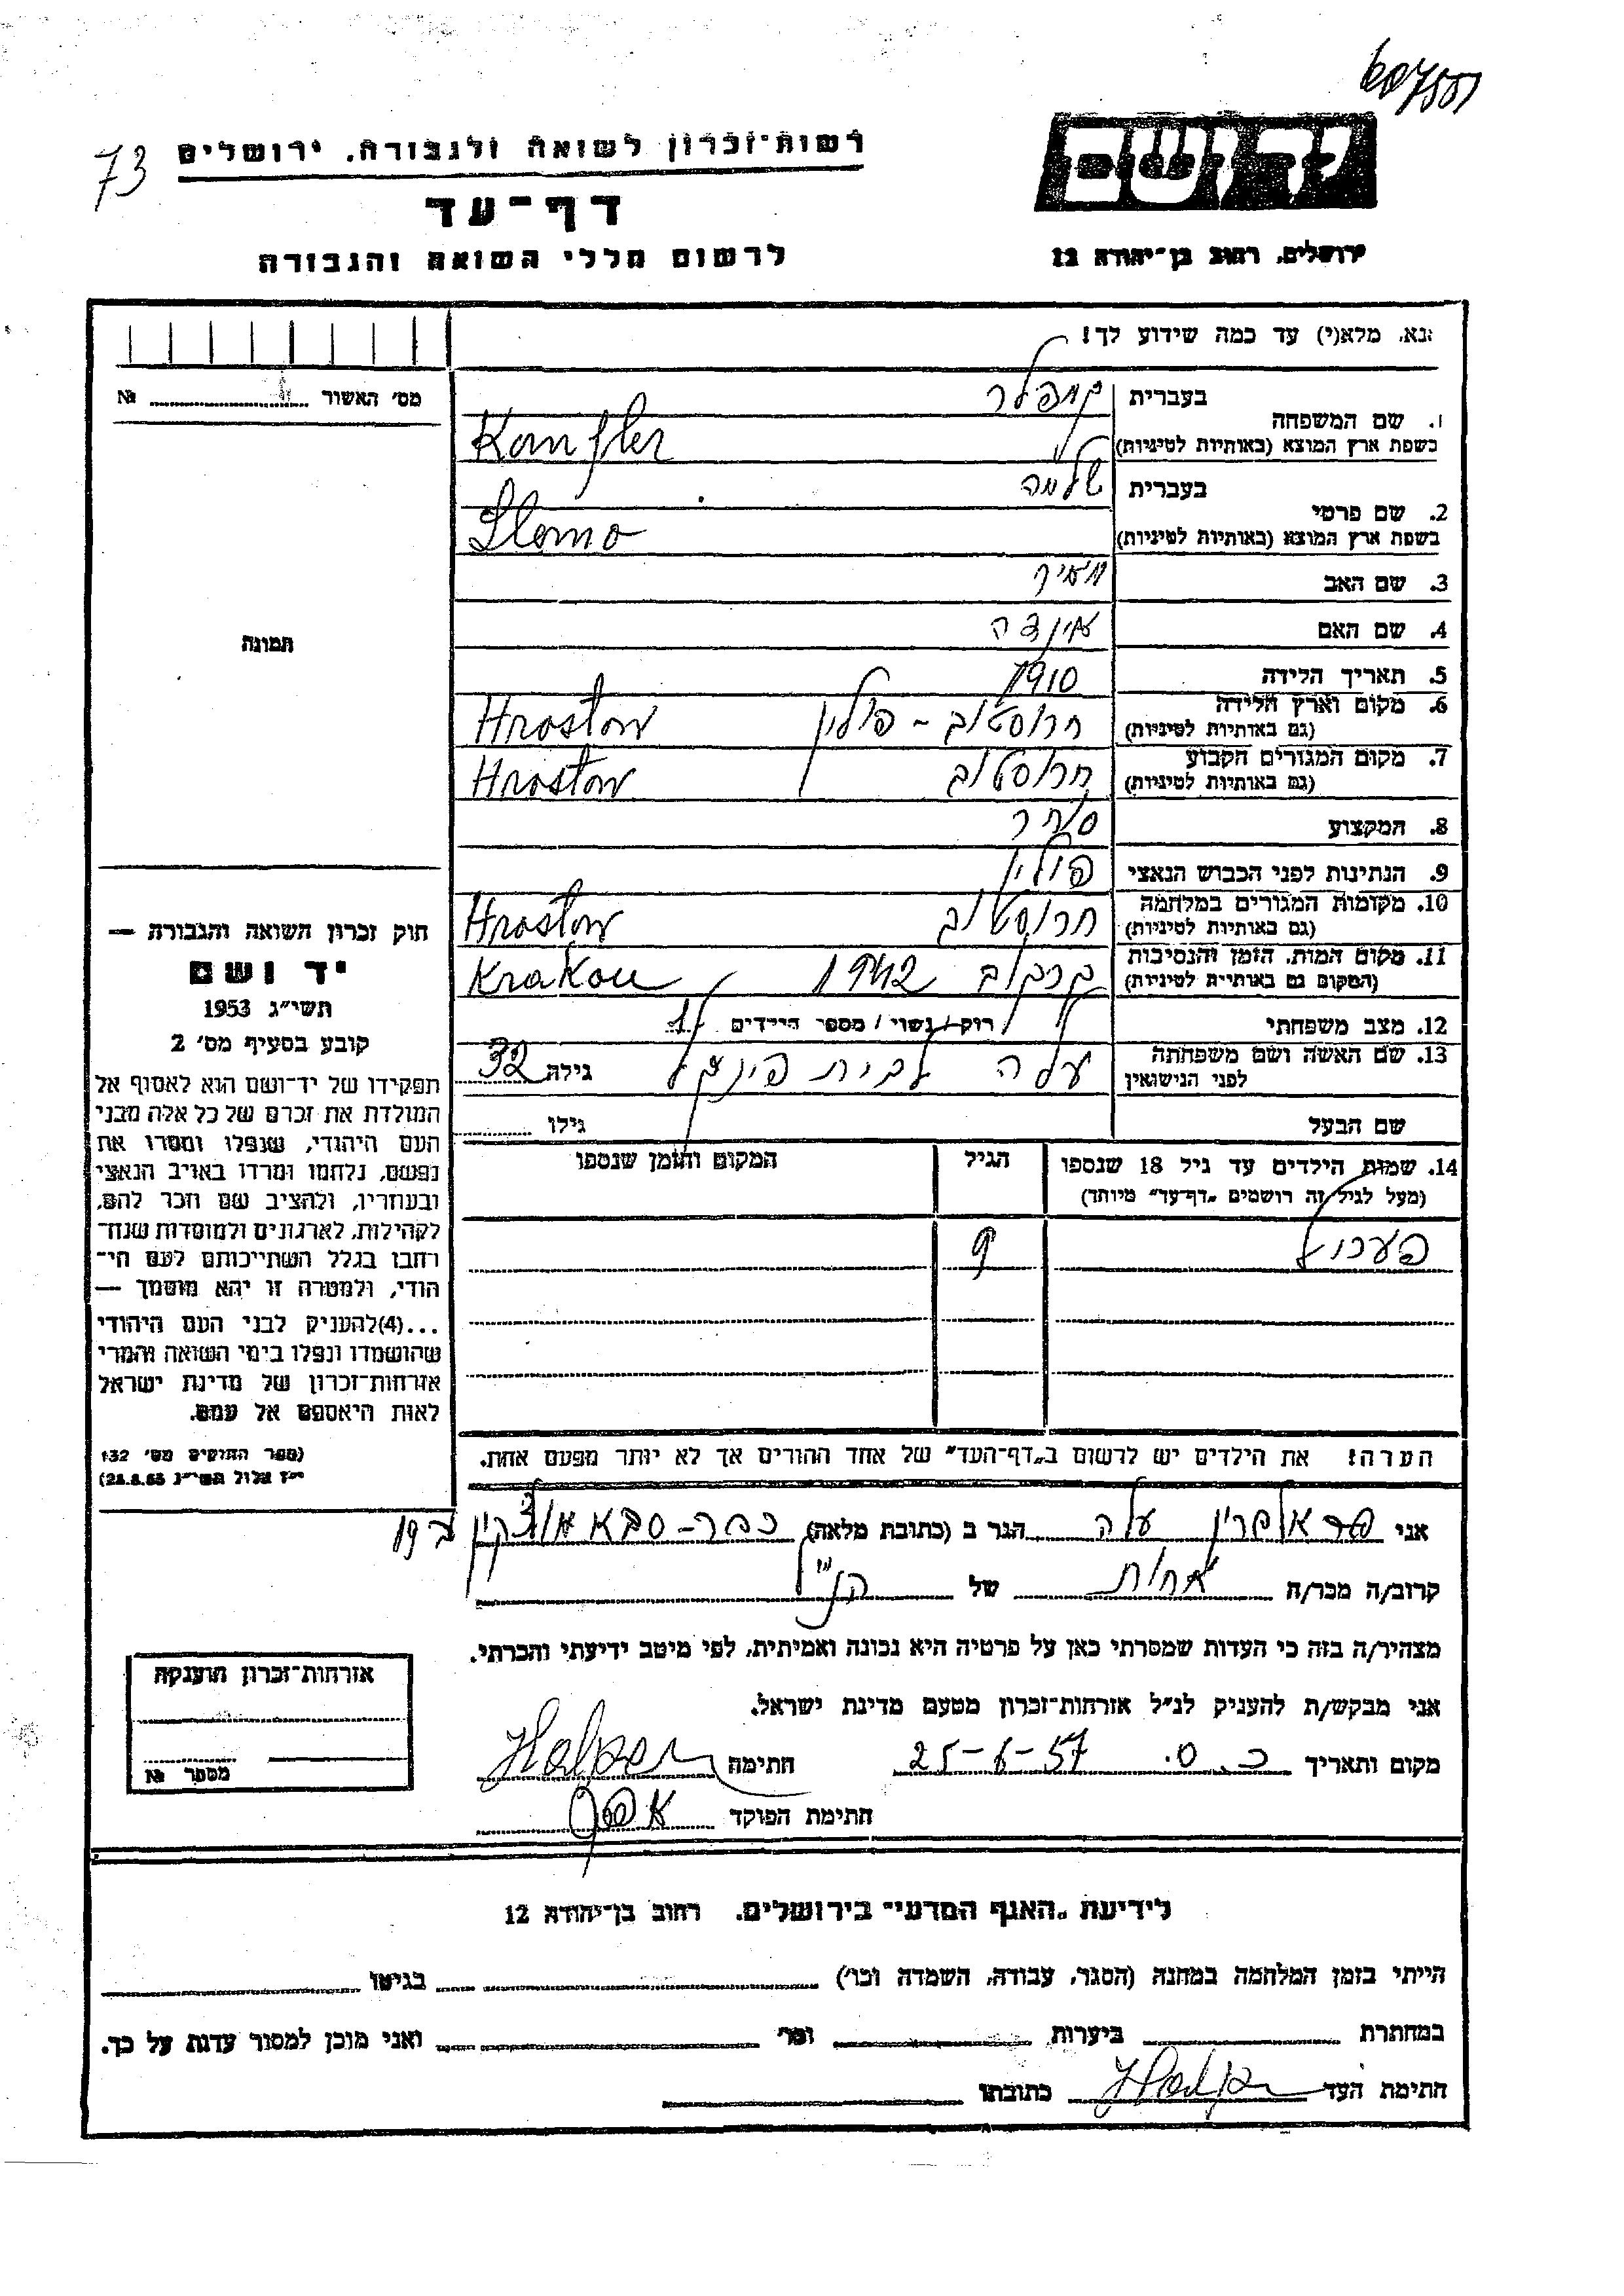 רשות־זכרון לשואה ולגבורה, ירושלים
73
דף־עד
לרשום חללי השואה והגבורה
ידושם
ירושלים, רחוב בן־יהודה 12
נא, מלא(י) עד כמה שידוע לך!
מס׳ האשור № 
תמונה
1. שם המשפחה בעברית
בשפת ארץ המוצא (באותיות לטיניות) Kanfler
2. שם פרטי בעברית שלמה
בשפת ארץ המוצא (באותיות לטיניות) Slomo
3. שם האב
4. שם האם
5. תאריך הלידה 1910
6. מקום וארץ הלידה (גם באותיות לטיניות) חרוסטוב - פולין Hrostow
7. מקום המגורים הקבוע (גם באותיות לטיניות) חרוסטוב Hrostow
8. המקצוע סוחר
9. הנתינות לפני הכבוש הנאצי פולין
10. מקומות המגורים במלחמה (גם באותיות לטיניות) חרוסטוב Hrostow
11. מקום המות, הזמן והנסיבות (המקום גם באותיות לטיניות) קרקוב 1942 Krakou
12. מצב משפחתי רוק/נשוי/מספר הילדים 1
13. שם האשה ושם משפחתה לפני הנישואין לבית גילה 32
שם הבעל גילו
14. שמות הילדים עד גיל 18 שנספו הגיל המקום והזמן שנספו
(מעל לגיל זה רושמים „דף־עד״ מיוחד)
9
הערה! את הילדים יש לרשום ב„דף־העד״ של אחד ההורים אך לא יותר מפעם אחת.
חוק זכרון השואה והגבורה —
יד ושם
תשי״ג 1953
קובע בסעיף מס׳ 2
תפקידו של יד־ושם הוא לאסוף אל
המולדת את זכרם של כל אלה מבני
העם היהודי, שנפלו ומסרו את
נפשם, נלחמו ומרדו באויב הנאצי
ובעוזריו, ולהציב שם וזכר להם,
לקהילות, לארגונים ולמוסדות שנח־
רבו בגלל השתייכותם לעם הי־
הודי, ולמטרה זו יהא מוסמך —
...(4)להעניק לבני העם היהודי
שהושמדו ונפלו בימי השואה והמרי
אזרחות־זכרון של מדינת ישראל
לאות היאספם אל עמם.
(ספר החוקים מס׳ 132
י״ז אלול תשי״ג 28.8.53)
אני הגר ב (כתובת מלאה) כפר-סבא 19
קרוב/ה מכר/ה אחות של הנ״ל
מצהיר/ה בזה כי העדות שמסרתי כאן על פרטיה היא נכונה ואמיתית, לפי מיטב ידיעתי והכרתי.
אני מבקש/ת להעניק לנ״ל אזרחות־זכרון מטעם מדינת ישראל.
מקום ותאריך כ.ס. 25-6-57 חתימה
חתימת הפוקד
אזרחות־זכרון הוענקה
מספר №
לידיעת „האגף המדעי״ בירושלים, רחוב בן־יהודה 12
הייתי בזמן המלחמה במחנה (הסגר, עבודה, השמדה וכו׳) בגיטו
במחתרת ביערות וכו׳ ואני מוכן למסור עדות על כך.
חתימת העד כתובתו